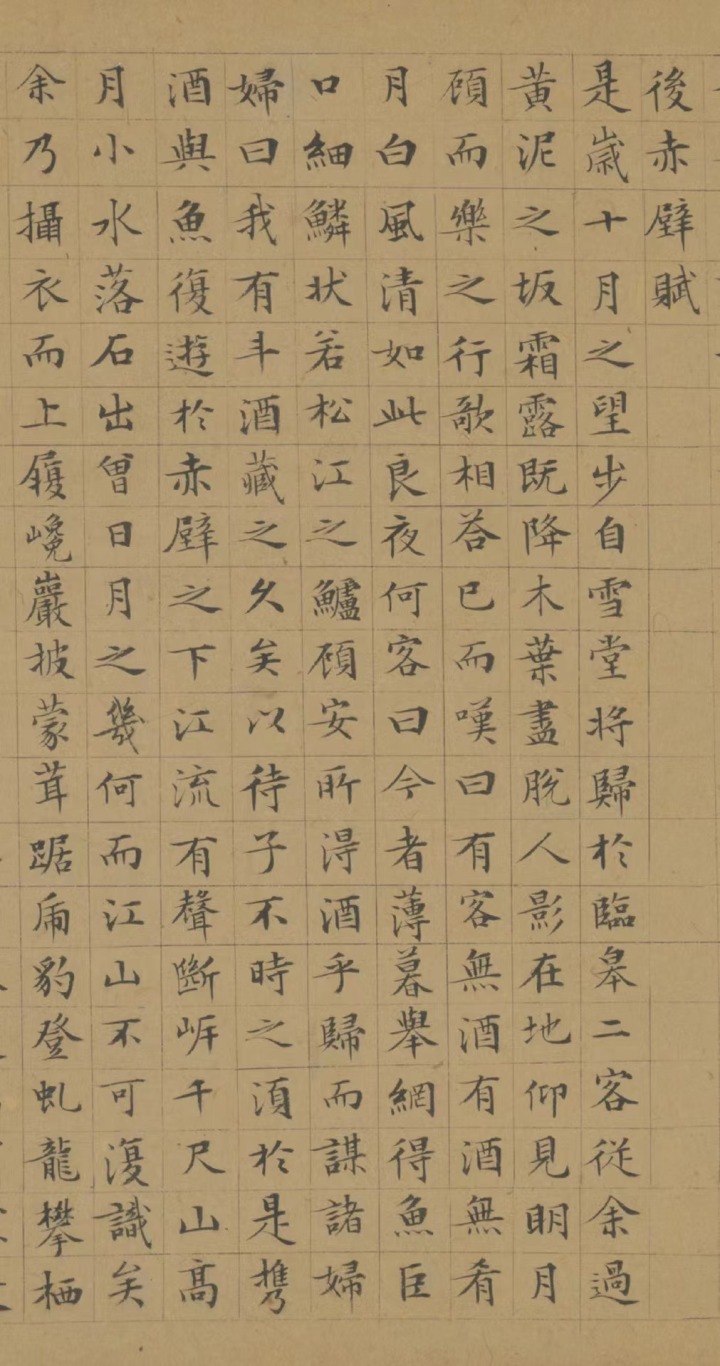 後赤壁賦
是歲十月之望步自雪堂將歸於臨皋二客從余過
黃泥之坂霜露既降木葉盡脫人影在地仰見明月
顧而樂之行歌相荅已而嘆曰有客無酒有酒無肴
月白風清如此良夜何客曰今者薄暮舉網得魚巨
口細鱗狀若松江之鱸顧安所得酒乎歸而謀諸婦
婦曰我有斗酒藏之久矣以待子不時之須於是攜
酒與魚復遊於赤壁之下江流有聲斷岸千尺山高
月小水落石出曾日月之幾何而江山不可復識矣
余乃攝衣而上履巉巖披蒙茸踞虎豹登虬龍攀栖